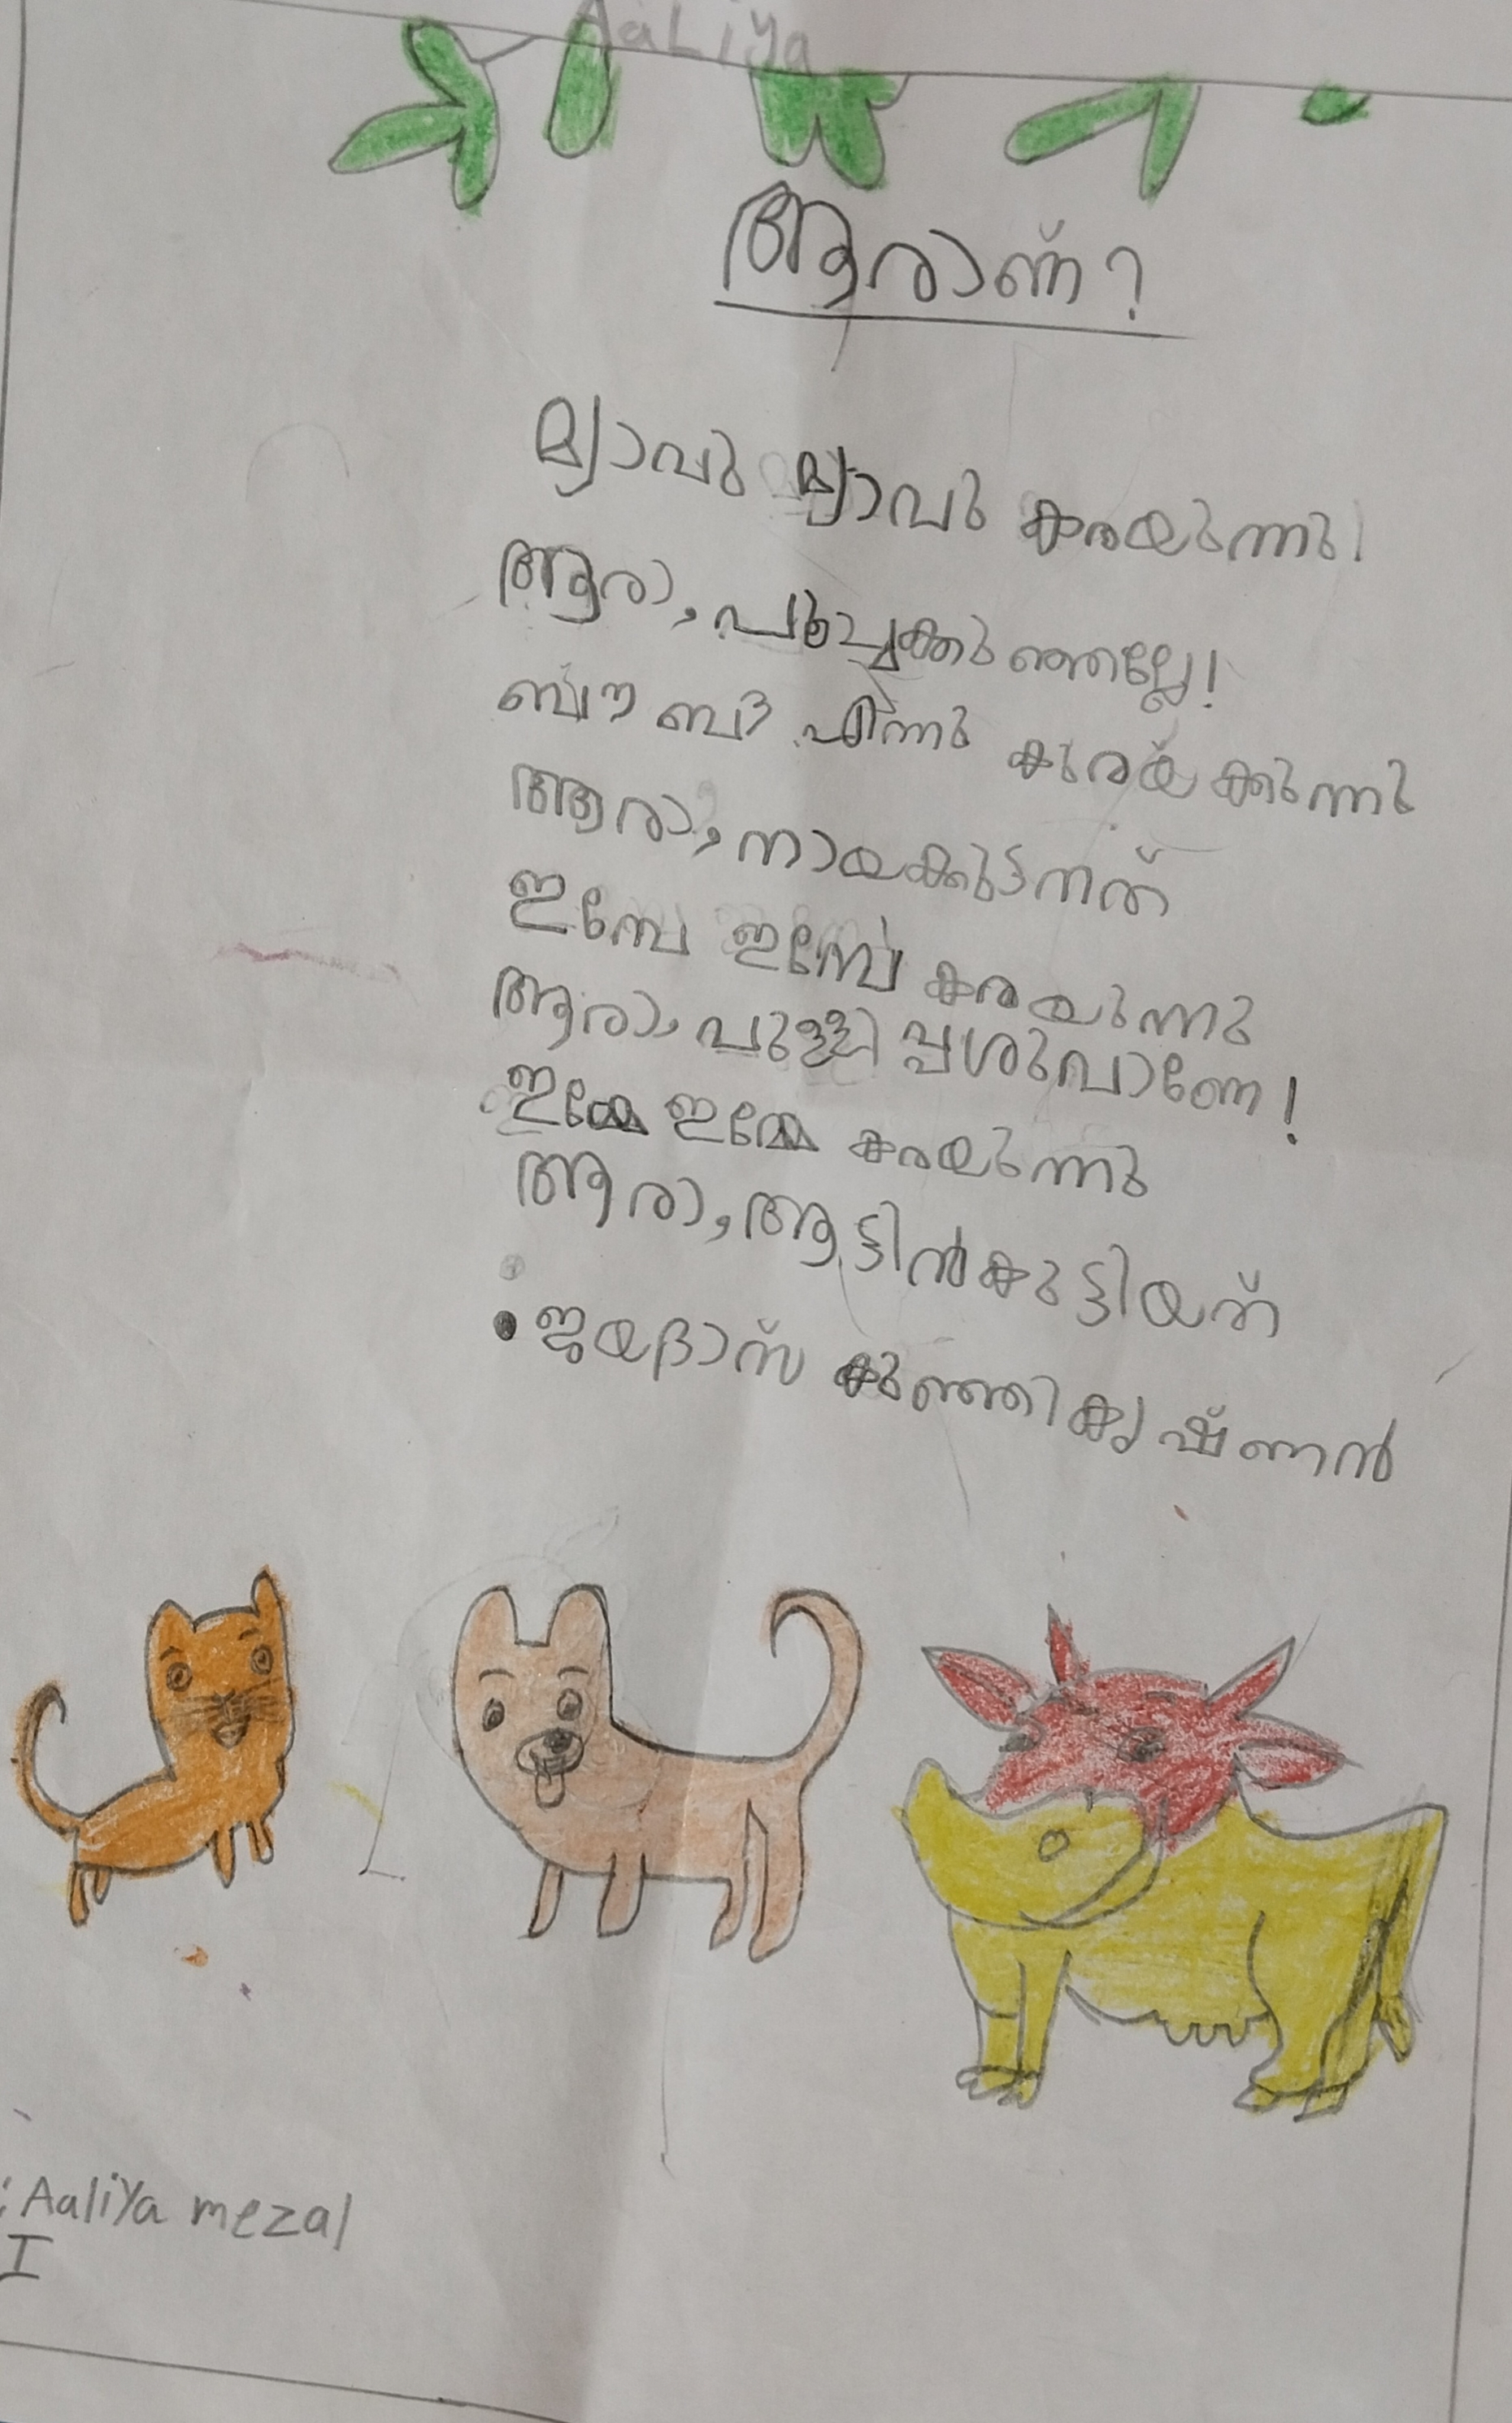 Aaliya
ആരാണ്?
മ്യാവു മ്യാവു കരയുന്നു
ആരാ, പൂച്ചക്കുഞ്ഞല്ലേ!
ബൗ ബൗ എന്നു കുരയ്ക്കുന്നു
ആരാ, നായക്കുട്ടനത്
ഇമ്പേ ഇമ്പേ കരയുന്നു
ആരാ, പുള്ളിപ്പശുവാണേ!
ഇമ്മേ ഇമ്മേ കരയുന്നു
ആരാ, ആട്ടിൻകുട്ടിയത്
• ജയദാസ് കുഞ്ഞികൃഷ്ണൻ
: Aaliya mezal
I